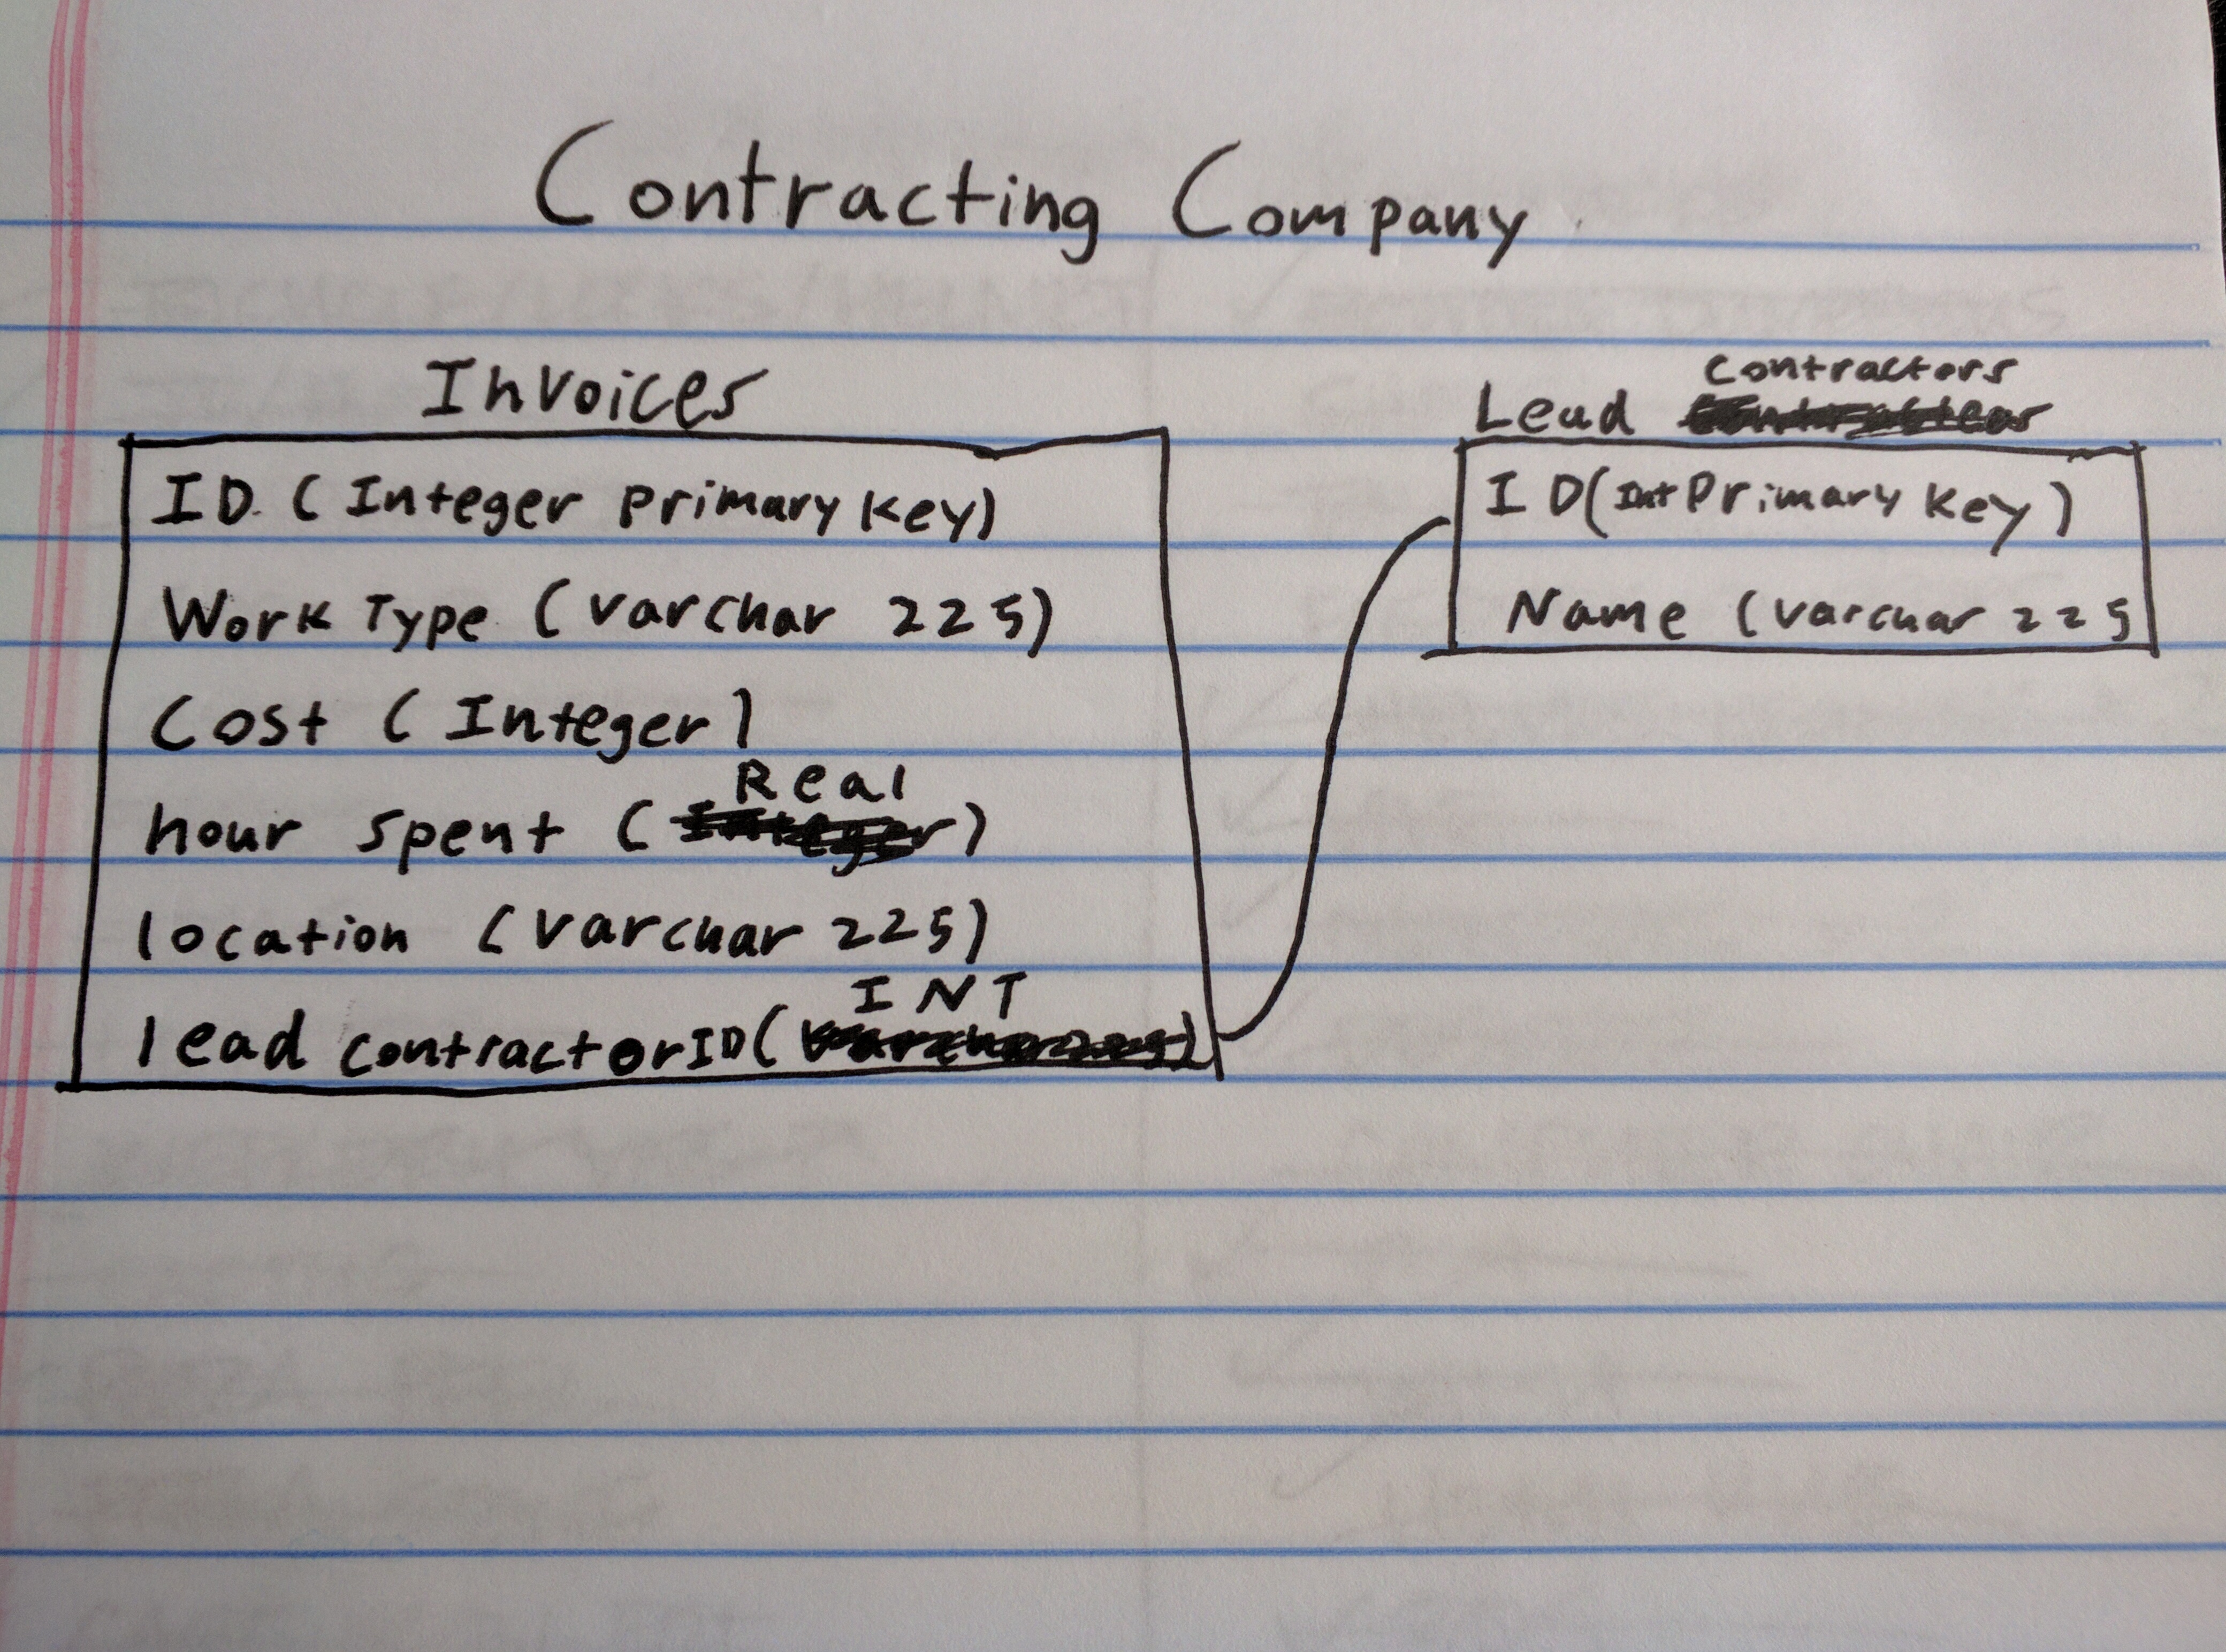 Contracting Company
Invoices
ID (Integer Primary Key)
Work Type (Varchar 225)
Cost (Integer)
Real
hour spent (Integer)
location (Varchar 225)
INT
lead contractorID (
Contractors
Lead
ID (Int Primary Key)
Name (Varchar 225